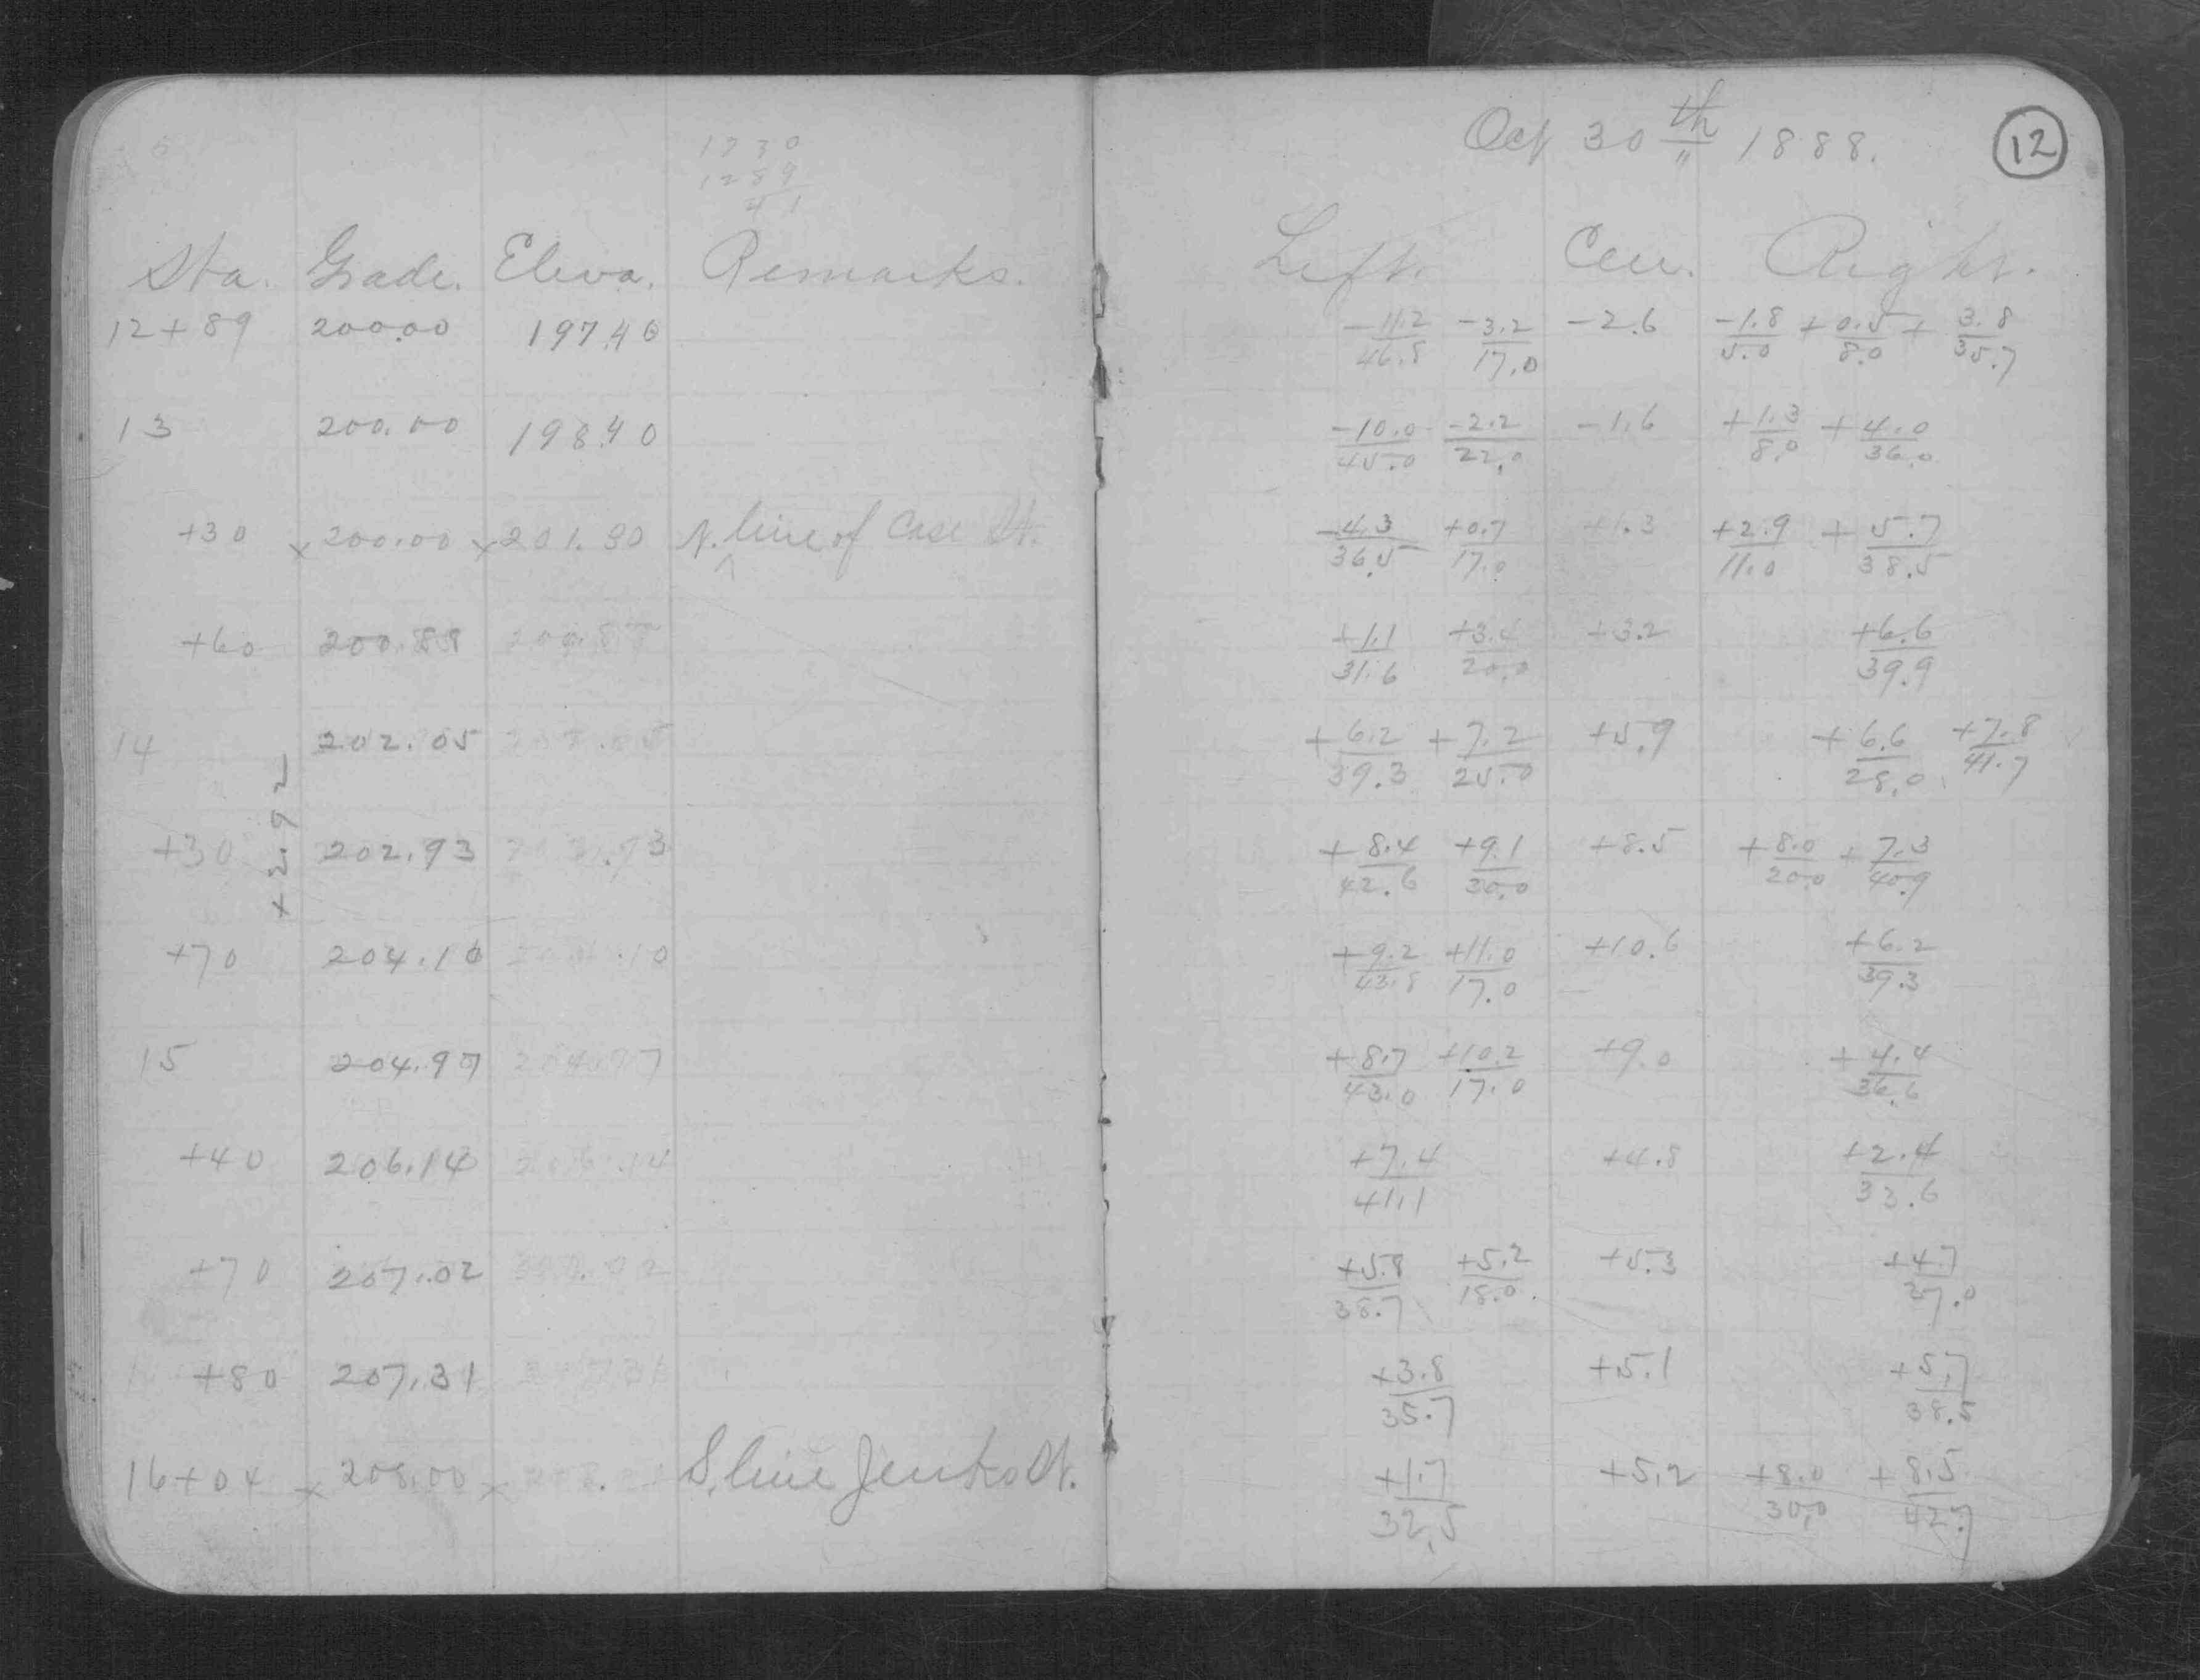 1330
1289
41
Sta. Grade. Eleva. Remarks.
12+89 200.00 197.40
13 200.00 198.40
+30 x 200.00 x 201.30 N. line of Case St.
+60 200.88
14 202.05
+2.92
+30 202.93
+70 204.10
15 204.97
+40 206.14
+70 207.02
+80 207.31
16+04 x 208.00 x 208. S. line Jenks St.
Oct 30th 1888. 12
Left. Cen. Right.
-11.2/46.8 -3.2/17.0 -2.6 -1.8/5.0 +0.5/8.0 +3.8/35.7
-10.0/45.0 -2.2/22.0 -1.6 +1.3/8.0 +4.0/36.0
-4.3/36.5 +0.7/17.0 +1.3 +2.9/11.0 +5.7/38.5
+1.1/31.6 +3.4/20.0 +3.2 +6.6/39.9
+6.2/39.3 +7.2/25.0 +5.9 +6.6/28.0 +7.8/41.7
+8.4/42.6 +9.1/30.0 +8.5 +8.0/20.0 +7.3/40.9
+9.2/43.8 +11.0/17.0 +10.6 +6.2/39.3
+8.7/43.0 +10.2/17.0 +9.0 +4.4/36.6
+7.4/41.1 +4.8 +2.4/33.6
+5.8/38.7 +5.2/18.0 +5.3 +4.7/37.0
+3.8/35.7 +5.1 +5.7/38.5
+1.7/32.5 +5.2 +8.0/30.0 +8.5/42.7